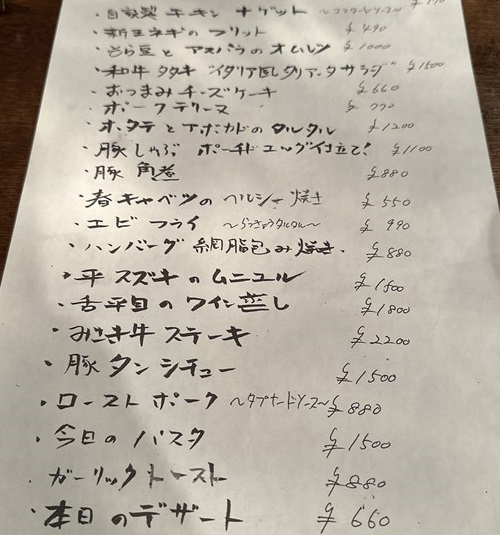 ・自家製 チキン ナゲット 〜マスタードソース〜
・新玉ネギの フリット ¥490
・そら豆と アスパラの オムレツ ¥1000
・和牛 タタキ "イタリア風タリアータサラダ" ¥1500
・おつまみ チーズケーキ ¥660
・ポークテリーヌ ¥770
・ホタテ と アボカドの タルタル ¥1200
・豚しゃぶ ポーチドエッグ仕立て! ¥1100
・豚 角煮 ¥880
・春キャベツの ヘルシー 焼き ¥550
・エビ フライ 〜らっきょうタルタル〜 ¥990
・ハンバーグ 網脂包み焼き. ¥880
・平 スズキの ムニエル ¥1500
・舌平目の ワイン蒸し ¥1800
・みさき牛 ステーキ ¥2200
・豚 タン シチュー ¥1500
・ロースト ポーク 〜タプナードソース〜 ¥880
・今日の パスタ ¥1500
ガーリックトースト ¥880
・本日 のデザート ¥660